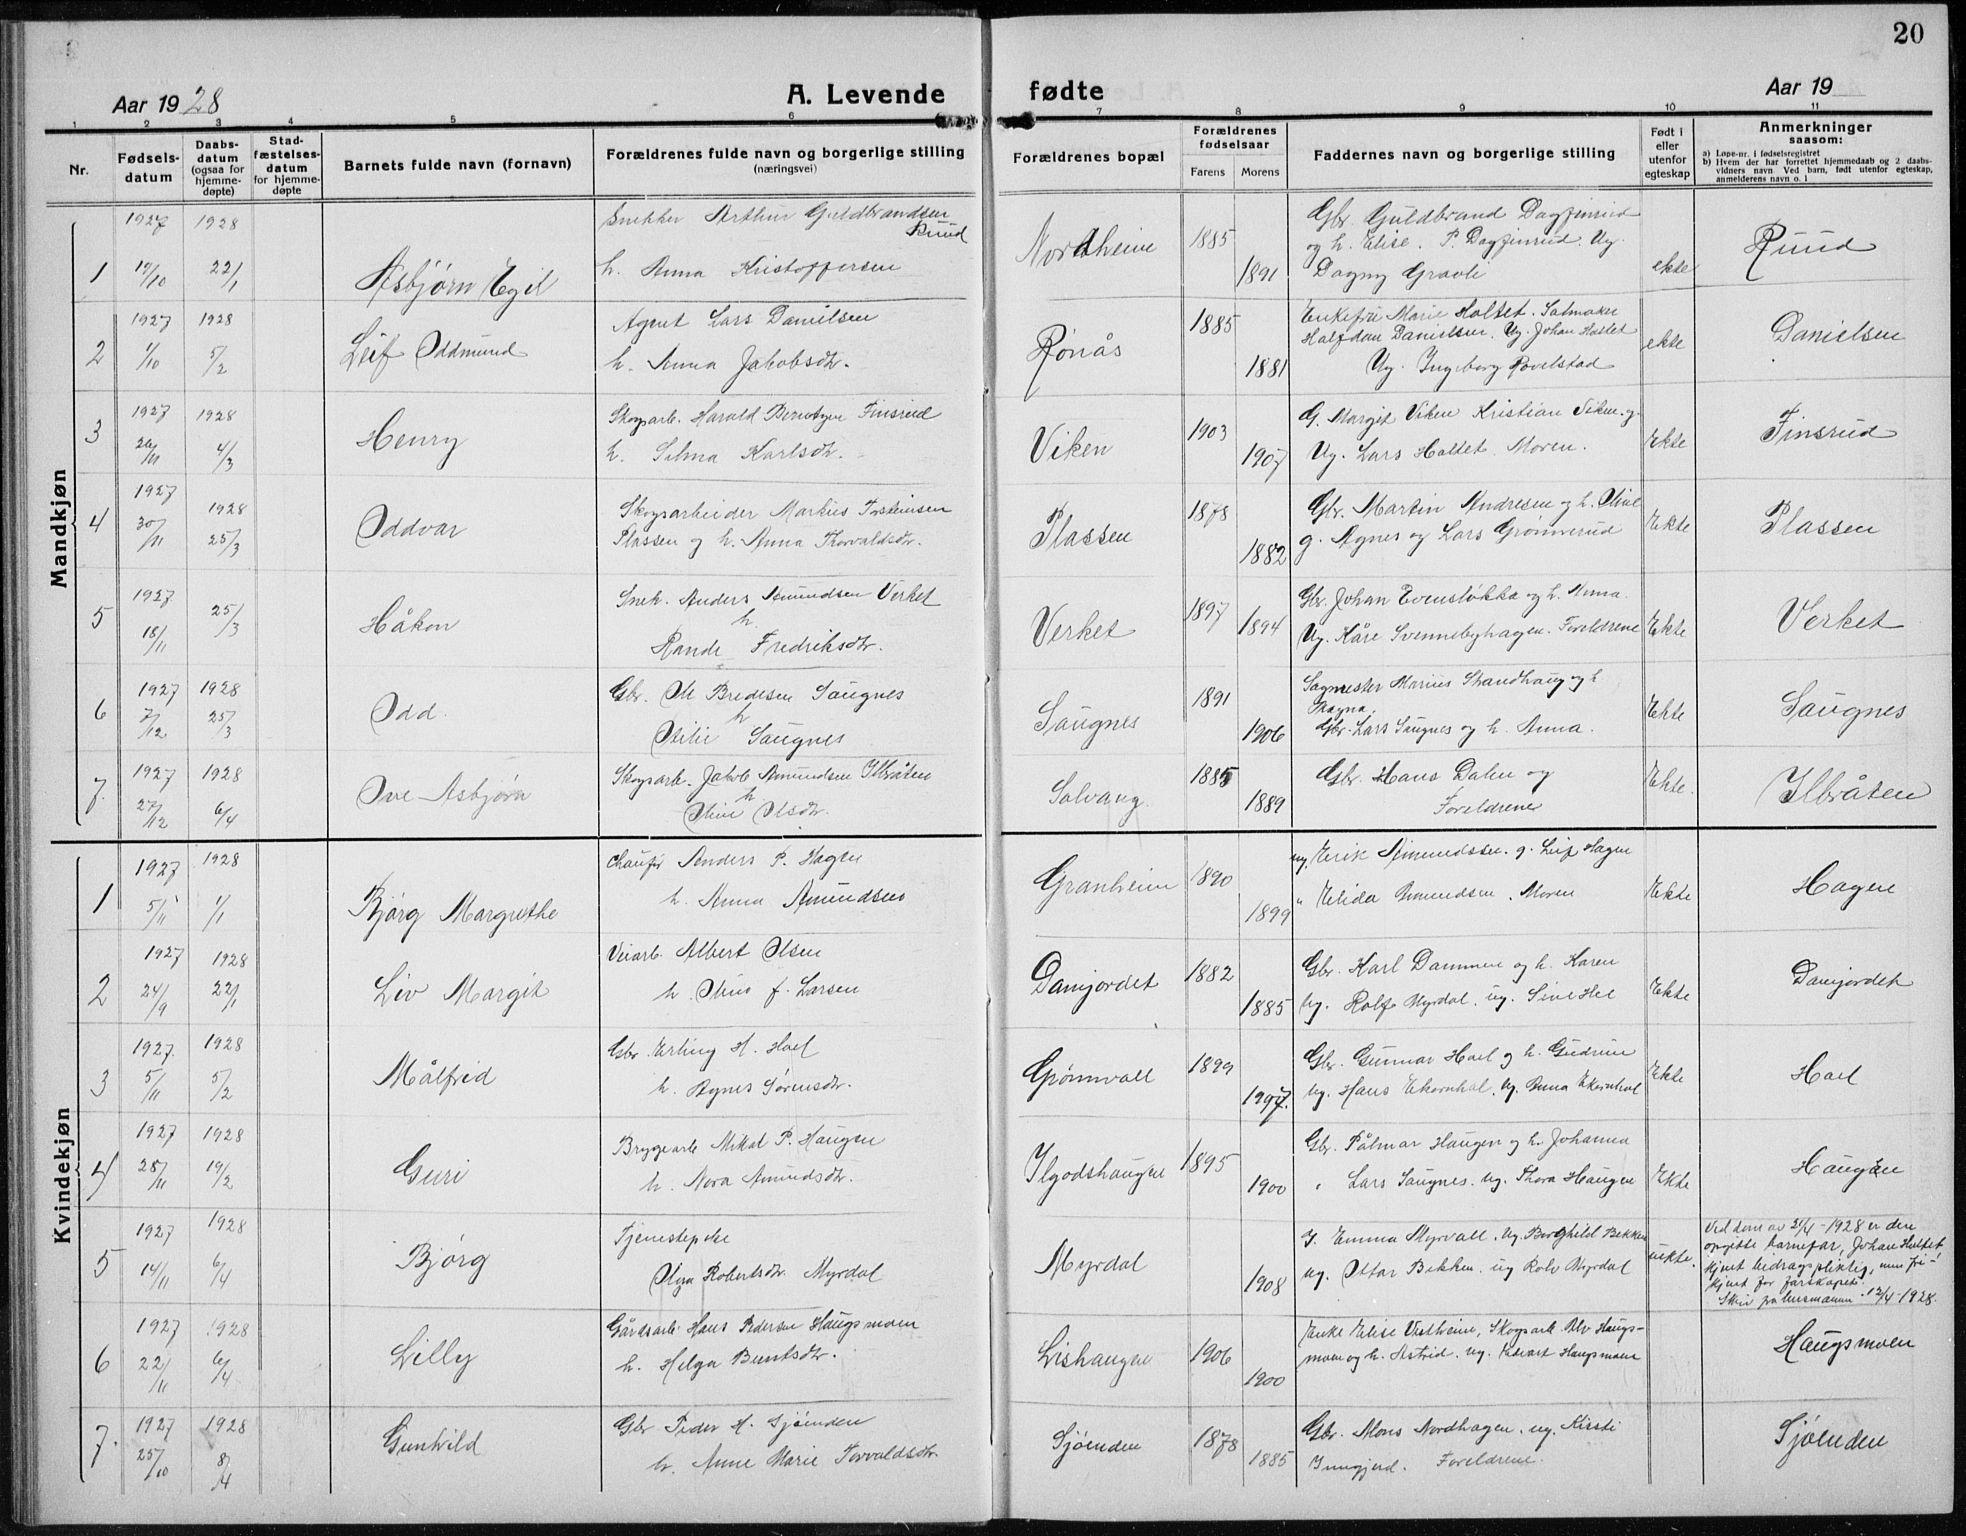 20
Aar 1928
A. Levende fødte
Aar 19
1 2 3 4 5 6 7 8 9 10 11
Nr.
Fødsels-
datum
Daabs-
datum
(ogsaa for
hjemme-
døpte)
Stad-
fæstelses-
datum
for hjemme-
døpte
Barnets fulde navn (fornavn)
Forældrenes fulde navn og borgerlige stilling
(næringsvei)
Forældrenes bopæl
Forældrenes
fødselsaar
Farens Morens
Faddernes navn og borgerlige stilling
Født i
eller
utenfor
egteskap
Anmerkninger
saasom:
a) Løpe-nr. i fødselsregistret
b) Hvem der har forrettet hjemmedaab og 2 daabs-
vidners navn. Ved barn, født utenfor egteskap,
anmelderens navn o. l
Mandkjøn
1927 1928 Snekker Arthur Guldbrandsen Ruud
1 19/10 22/1 Asbjørn Egil h. Anna Kristoffersen
Nordheim 1885 1891
Gbr. Guldbrand Dagfinrud
og h. Elise. P. Dagfinrud. Ug.
Dagny Gravli
ekte Ruud
1927 1928 Agent Lars Danielsen
2 1/10 5/2 Leif Oddmund h. Anna Jakobsdtr.
Rønås 1885 1881
Enkefru Marie Holtet. Salmaker
Halfdan Danielsen. Ug. Johan Holtet
Ug. Ingeborg Røvelstad
ekte Danielsen
1927 1928 Skogsarb. Harald Berntzen Finsrud
3 26/11 4/3 Henry h. Selma Karlsdtr.
Viken 1903 1907
G. Margit Viken Kristian Viken. g.
Ug. Lars Holtet. Moren.
Ekte Finsrud
1927 1928 Skogsarbeider Markus Torsteinsen
4 30/11 25/3 Oddvar Plassen og h. Anna Thorvaldsdtr.
Plassen 1878 1882
Gbr. Martin Andresen og h. Oline
g. Agnes og Lars Grønnerud
Ekte Plassen
1927 25/3 Snek. Anders Amundsen Verket
5 18/11 Håkon h. Rande Fredriksdtr.
Verket 1897 1894
Gbr. Johan Evensløkka og h. Anna.
Ug. Kåre Svennebyhagen. Foreldrene
Ekte Verket
1927 1928 Gbr. M Bredesen Saugnes
6 7/12 25/3 Odd. h. Otilie Saugnes
Saugnes 1891 1906
Sagmester Marius Strandhaug og h
Magna.
Gbr. Lars Saugnes og h. Anna.
Ekte Saugnes
1927 1928 Skogsarb. Jakob Amundsen Ilbråten
7. 27/12 6/4 Ove Asbjørn h. Oline Olsdtr.
Solvang. 1885 1889
Gbr. Hans Dalen og
Foreldrene
Ekte. Ilbråten
Kvindekjøn
1927 1928 Chaufør Anders P. Hagen
1 5/11 1/1 Bjørg Margrethe h. Anna Amundsen
Granheim 1890 1899
ug. Erik Amundssen. g. Leif Hagen
" Elida Amundsen. Moren
Ekte Hagen
1927 1928 Veiarb. Albert Olsen
2 24/9 22/1 Liv Margit h. Oline f. Larsen
Damjordet 1882 1885
Gbr. Karl Dammen og h. Karen
Ug. Rolf Myrdal. ug.
Ekte Damjordet
1927. 1928 Gbr. Erling H. Hoel
3 5/11 5/2 Målfrid h. Agnes Sørensdtr.
Grønvoll 1899 1907.
Gbr. Gunnar Hoel og h. Gudrun
Ug. Hans Ekornhol. Ug. Anna Ekornhol
Ekte Hoel
1927 1928 Bryggearb Mikal P. Haugen
4 28/11 19/2 Guri h. Nora Amundsdtr.
Ilgodshaugen 1895 1900
Gbr. Pålmar Haugen og h. Johanna
" Lars Saugnes. ug. Thora Haugen
Ekte Haugen
1927 1928 Tjenestepike
5 14/11 6/4 Bjørg Olga Robertsdtr. Myrdal
Myrdal 1908
G. Emma Myrvall. Ug. Borghild Bekken
ug. Ottar Bekken. ug Rolv Myrdal
uekte.
Ved dom av 24/4-1928 er den
opgitte barnefar, Johan Hultet
kjent bidragspliktig, men fri-
kjent for farskapet.
Skr. fra lensmannen 12/4-1928.
1927 1928 Gårdsarb. Hans Pedersen Haugsmoen
6 22/11 6/4 Lilly h. Helga Berntsdtr.
Lishaugen 1906 1900
Enke Elise Vestheim, Skogsarb. Alv Haugs-
moen og h. Astrid. ug. Edvart Haugsmoen
Haugsmoen
1927 1928 Gbr Peder H. Sjøenden
7. 25/10 8/4 Gunhild h. Anne Marie Torvaldsdtr.
Sjøenden 1878 1885
Gbr. Mons Nordhagen. ug. Kirsti
Inngjerd. Foreldrene.
Sjøenden